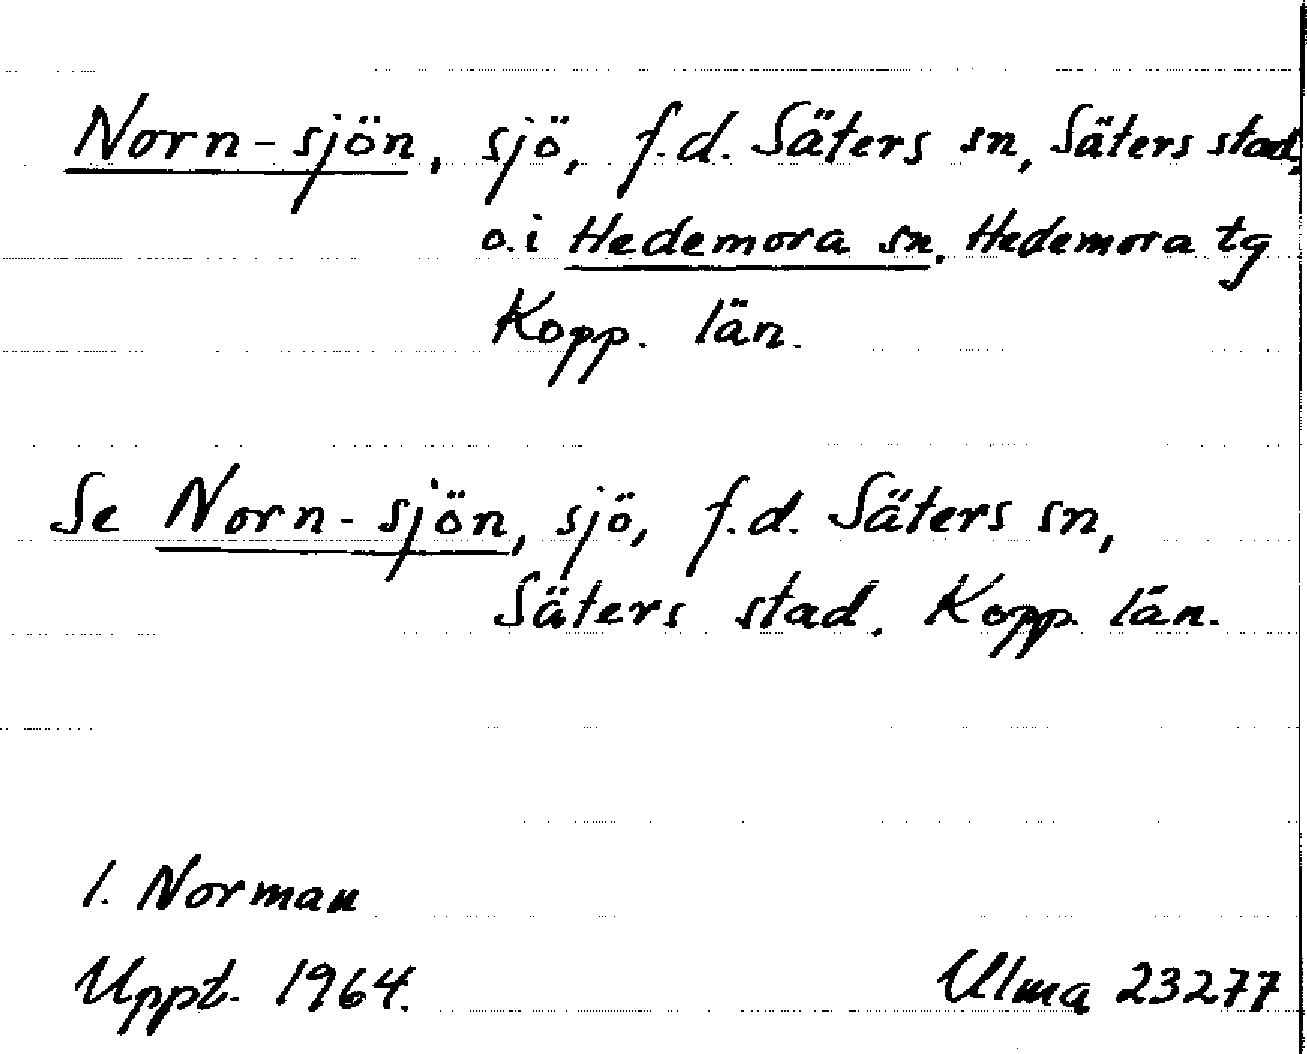 Norn-sjön, sjö, f.d. Säters sn, Säters stad,
o. i Hedemora sn. Hedemora tg
Kopp. län.
Se Norn-sjön, sjö, f.d. Säters sn,
Säters stad. Kopp. län.
I. Norman
Uppt. 1964. Ulma 23277